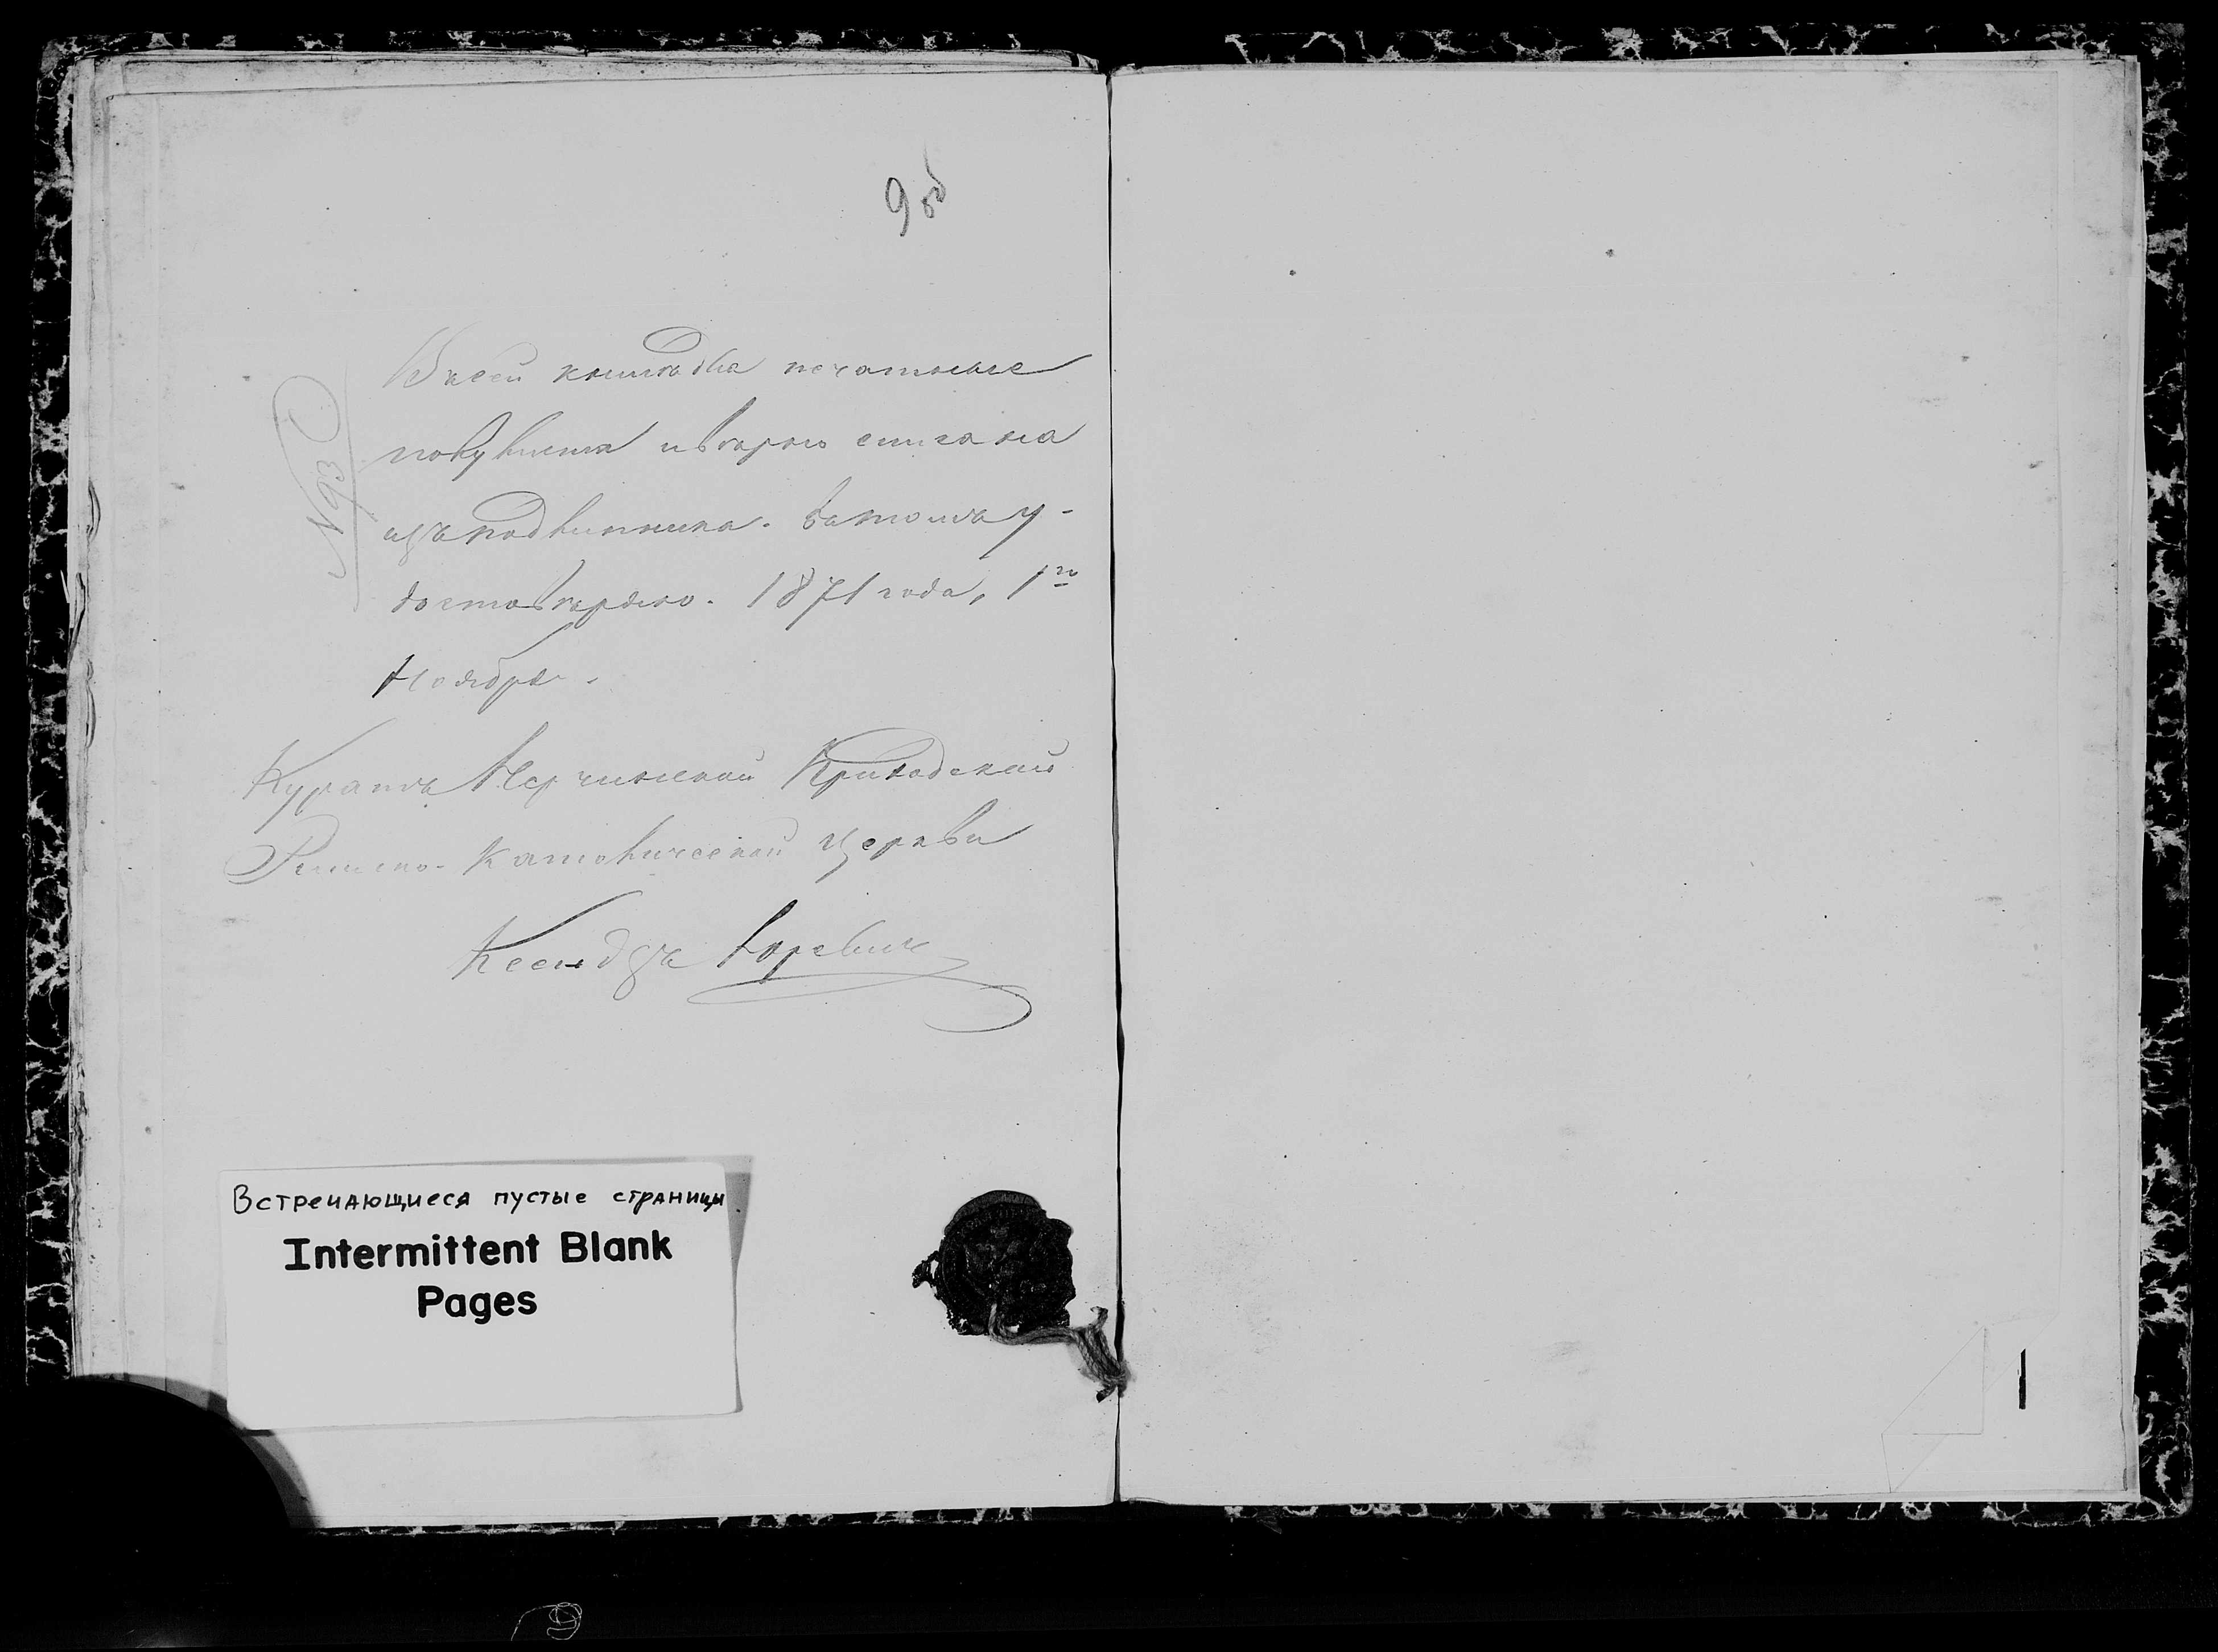 9 об
№ 93
Въ сей книгѣ два печатные
полулиста и вѣрно списана
изъ подлинника. въ томъ у-
достовѣряю. 1871 года, 1го
Ноября.
Куратъ Нерчинской Приходской
Римско-Католической Церкви
Ксендзъ
Встречающиеся пустые страницы.
Intermittent Blank
Pages